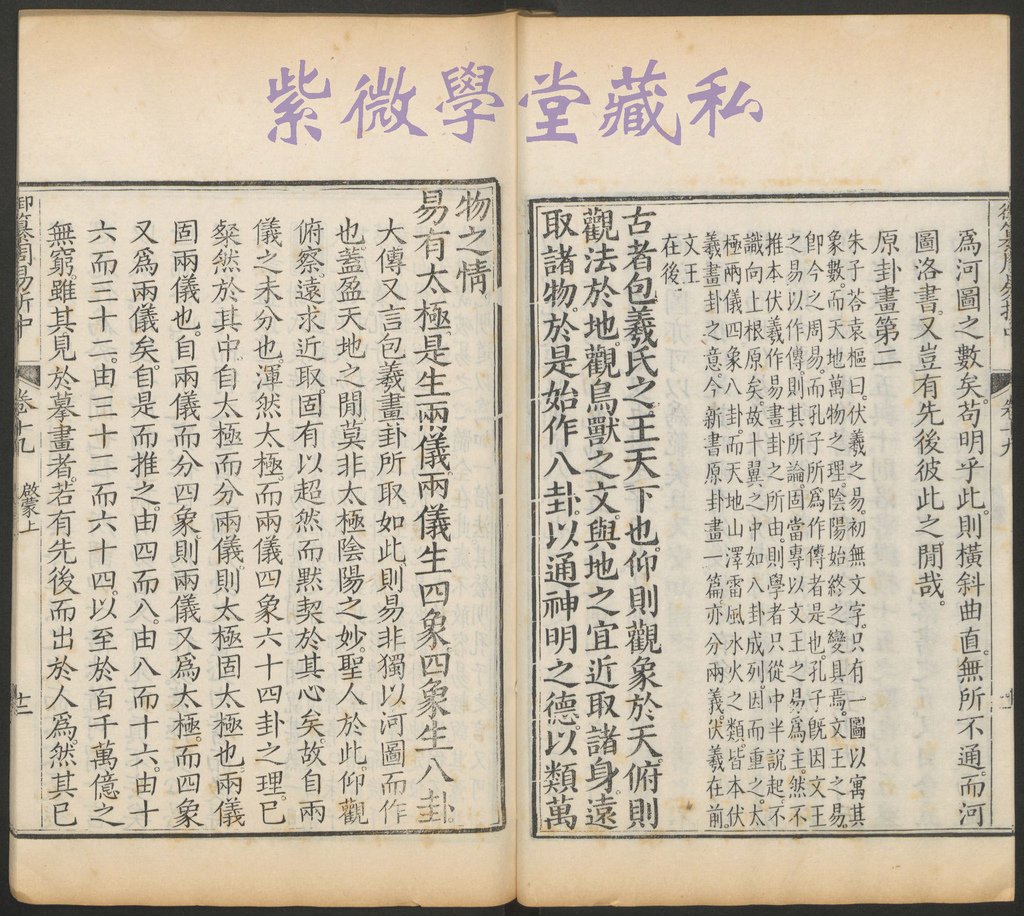 紫微學堂藏私
爲河圖之數矣。苟明乎此。則橫斜曲直。無所不通。而河
圖洛書。又豈有先後彼此之閒哉。
原卦畫第二
朱子荅袁樞曰。伏羲之易。初無文字。只有一圖以寓其
象數。而天地萬物之理。陰陽始終之變具焉。文王之易
卽今之周易。而孔子所爲作傳者是也。孔子旣因文王
之易以作傳。則其所論。固當專以文王之易爲主。然不
推本伏羲作易畫卦之所由。則學者只從中半說起。不
識向上根原矣。故十翼之中。如八卦成列。因而重之。太
極兩儀四象八卦。而天地山澤雷風水火之類。皆本伏
羲畫卦之意。今新書原卦畫一篇。亦分兩義。伏羲在前。
文王
在後。
古者包羲氏之王天下也。仰則觀象於天。俯則
觀法於地。觀鳥獸之文。與地之宜。近取諸身。遠
取諸物。於是始作八卦。以通神明之德。以類萬
物之情。
易有太極。是生兩儀。兩儀生四象。四象生八卦。
大傳又言包羲畫卦所取如此。則易非獨以河圖而作
也。蓋盈天地之閒。莫非太極陰陽之妙。聖人於此。仰觀
俯察。遠求近取。固有以超然而默契於其心矣。故自兩
儀之未分也。渾然太極。而兩儀四象六十四卦之理。已
粲然於其中。自太極而分兩儀。則太極固太極也。兩儀
固兩儀也。自兩儀而分四象。則兩儀又爲太極。而四象
又爲兩儀矣。自是而推之。由四而八。由八而十六。由十
六而三十二。由三十二而六十四。以至於百千萬億之
無窮。雖其見於摹畫者。若有先後而出於人爲。然其已
御纂周易折中 卷十九 啟蒙上 十二